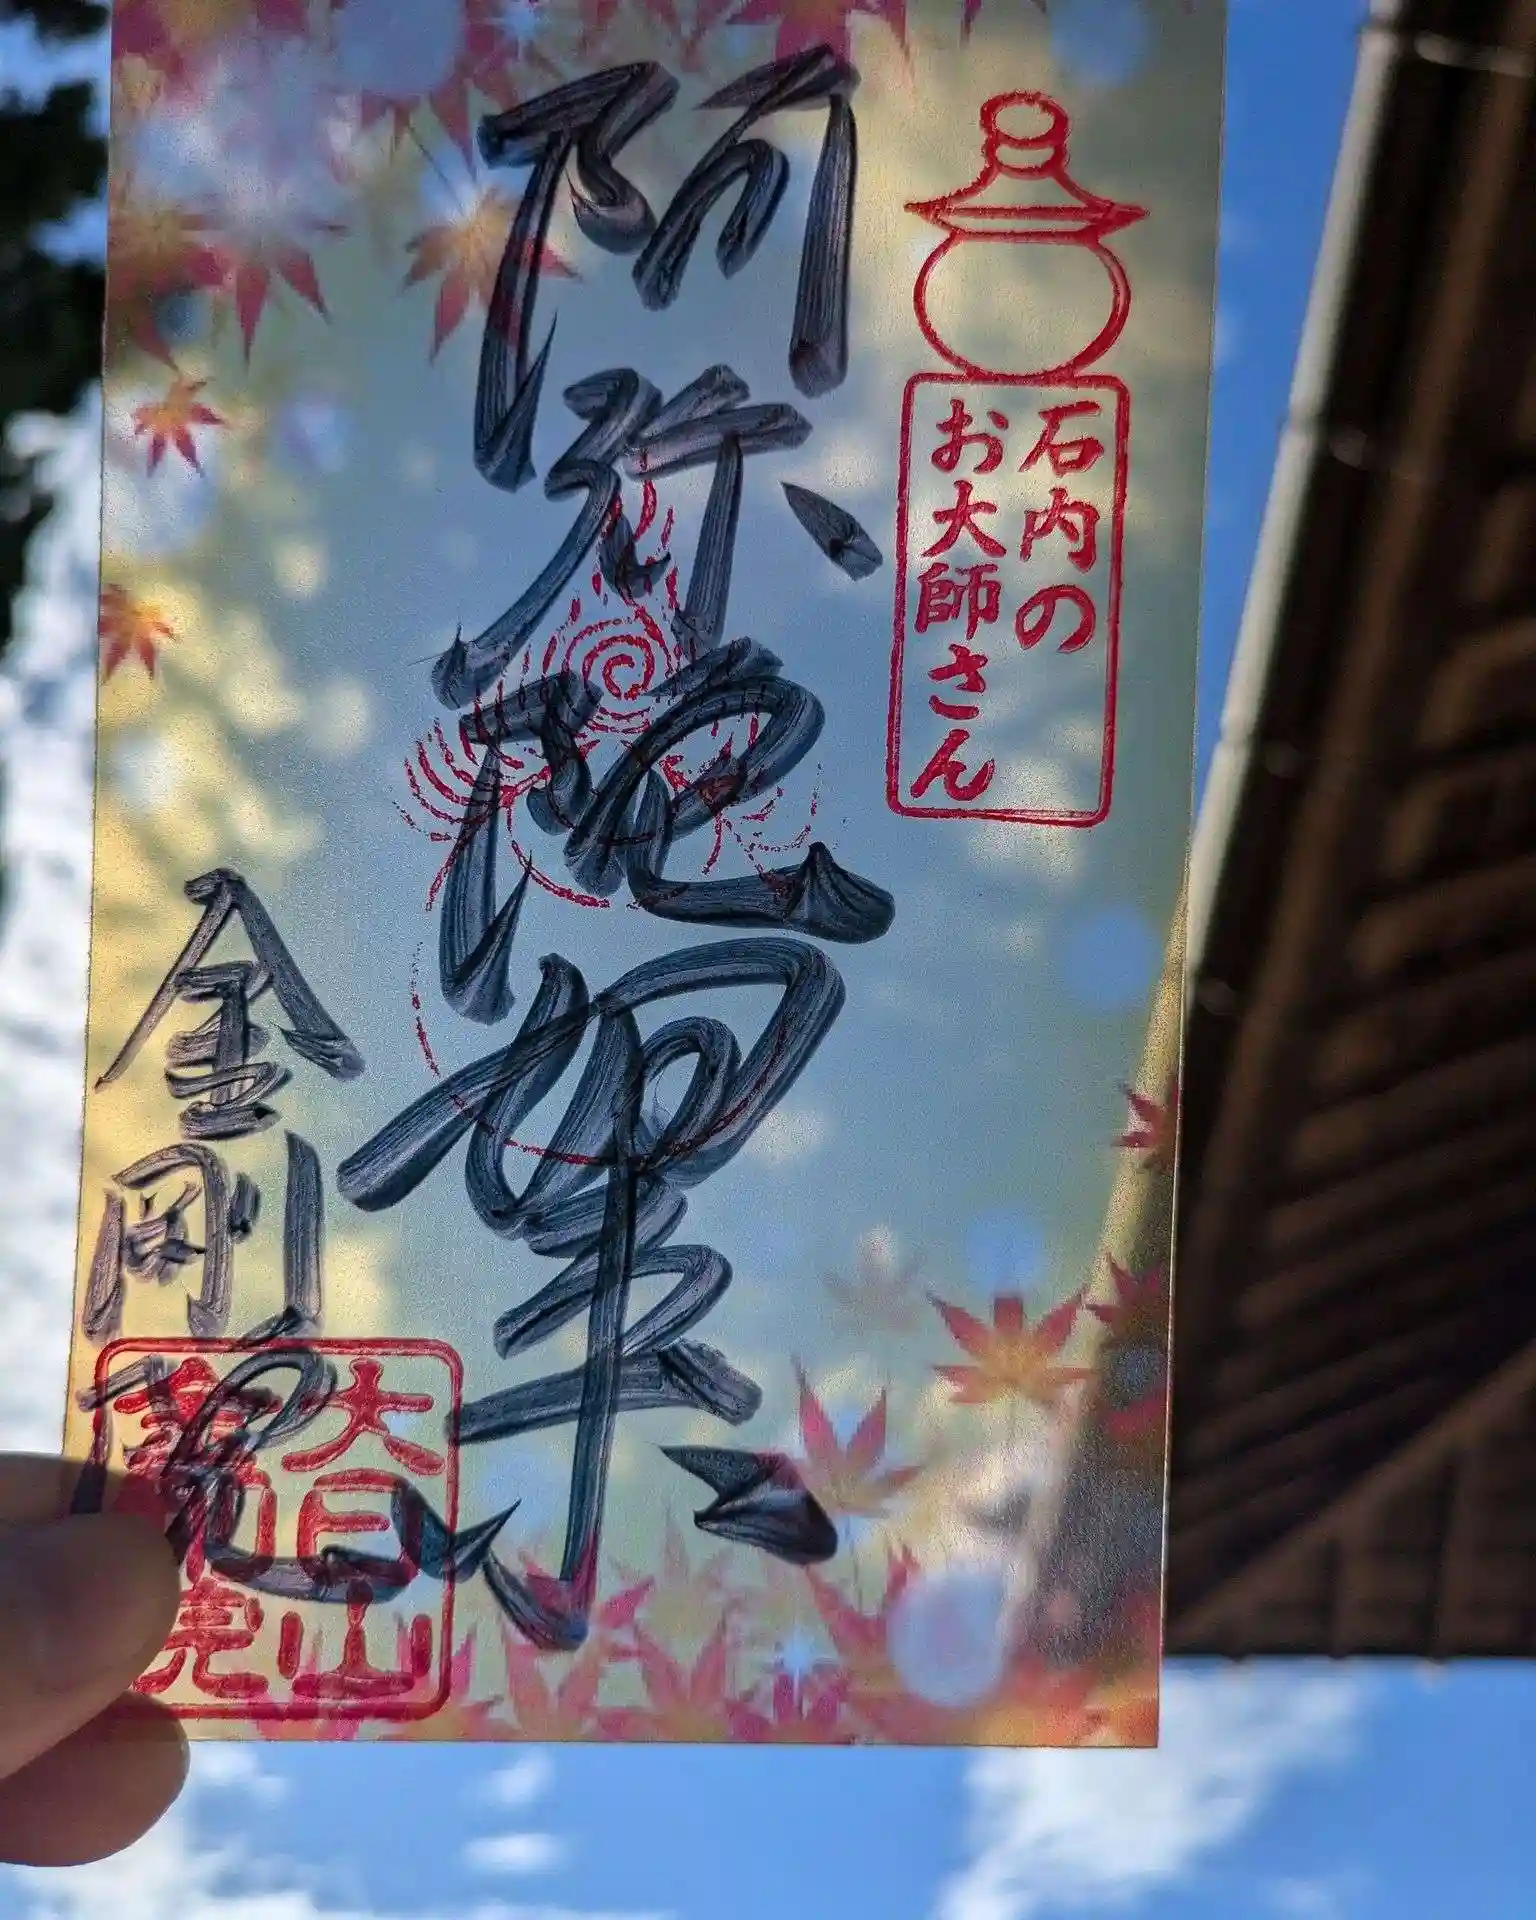 石内の
お大師さん
阿弥陀如来
金剛
大日山